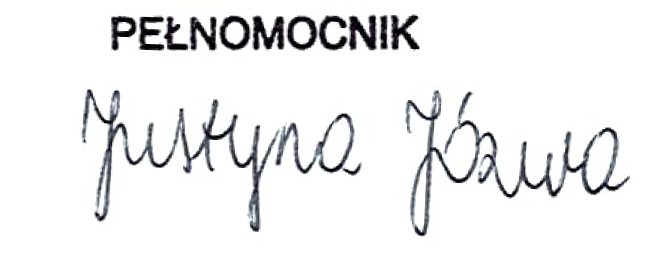 PEŁNOMOCNIK
Justyna Józwa